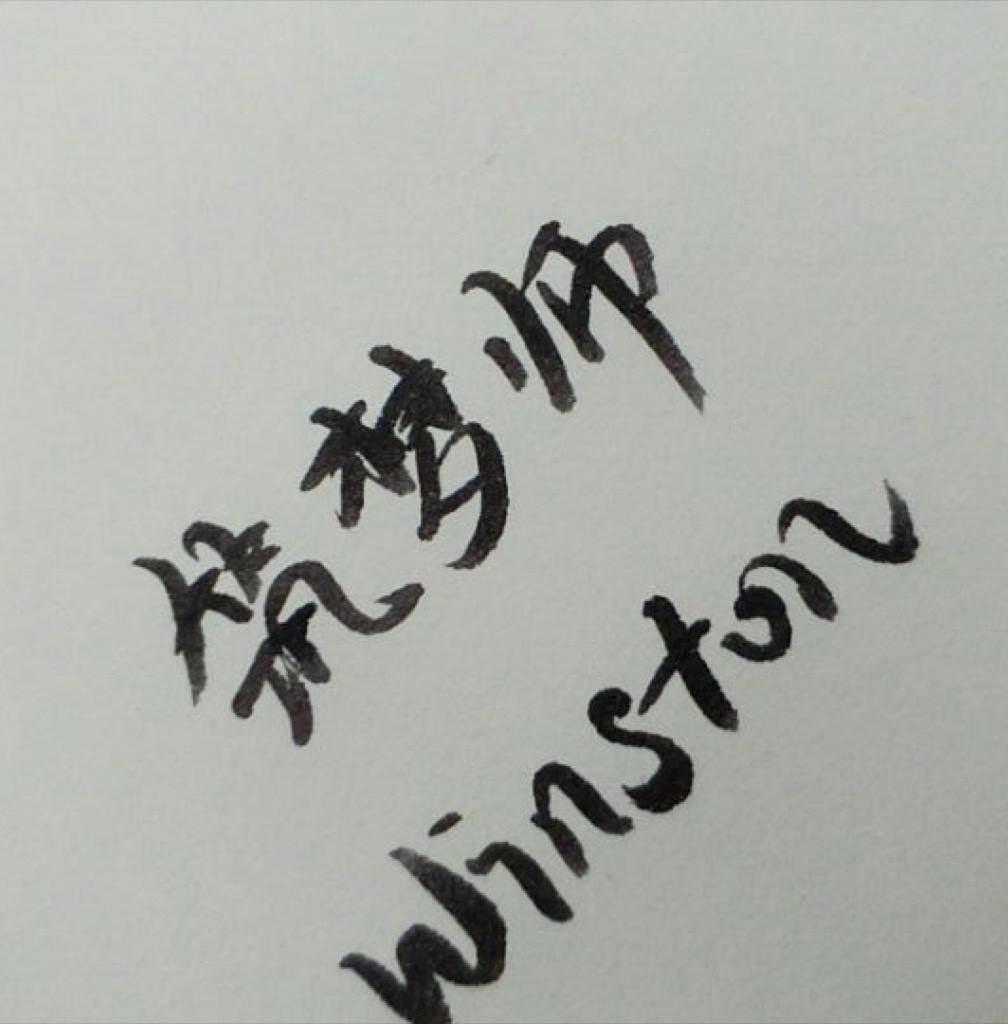 筑梦师
Winston